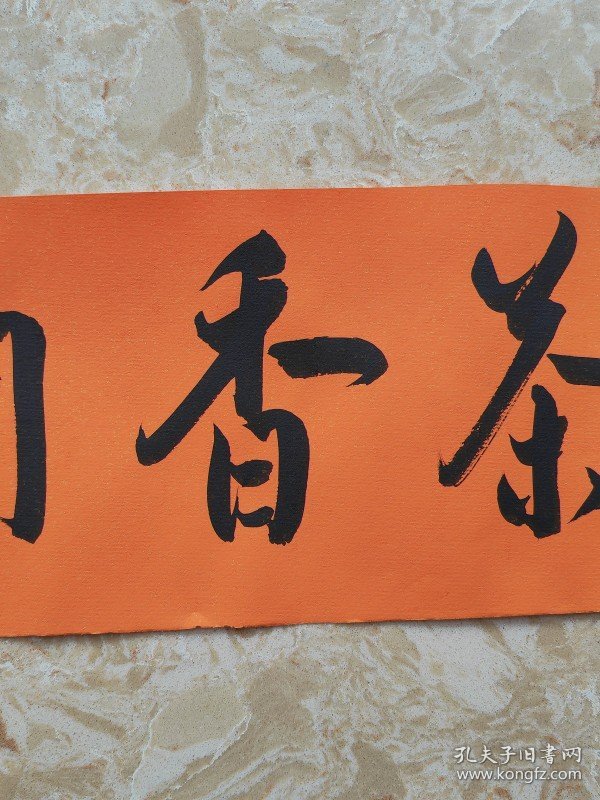 茶香
孔夫子旧书网
www.kongfz.com